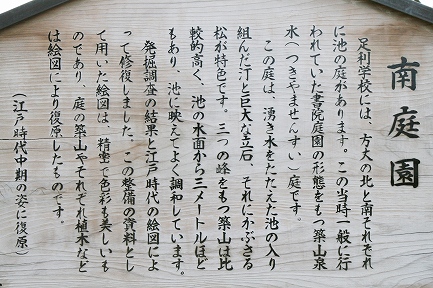 南庭園
足利学校には、方丈の北と南それぞれ
に池の庭があります。この当時一般に行
われていた書院庭園の形態をもつ築山泉
水（つきやませんすい）庭です。
この庭は、湧き水をたたえた池の入り
組んだ汀と巨大な立石、それにかぶさる
松が特色です。三つの峰をもつ築山は比
較的高く、池の水面から三メートルほど
もあり、池に映えてよく調和しています。
発掘調査の結果と江戸時代の絵図によ
って修復しました。この整備の資料とし
て用いた絵図は、精密で色彩も美しいも
のであり、庭の築山やそれぞれ植木など
は絵図により復原したものです。
（江戸時代中期の姿に復原）